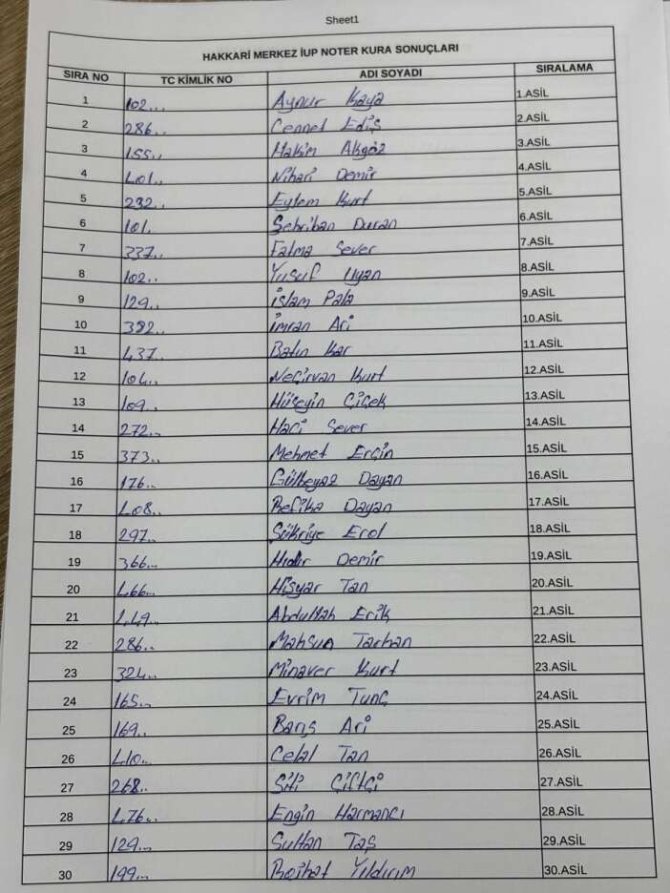 Sheet1
HAKKARİ MERKEZ İUP NOTER KURA SONUÇLARI
SIRA NO TC KİMLİK NO ADI SOYADI SIRALAMA
1 102... Aynur Kaya 1.ASİL
2 286.. Cennet Ediş 2.ASİL
3 155.. Hakim Akgöz 3.ASİL
4 401.. Nihari Demir 4.ASİL
5 292.. Eylem Kurt 5.ASİL
6 101. Şehriban Duran 6.ASİL
7 337.. Fatma Sever 7.ASİL
8 102.. Yusuf Uyan 8.ASİL
9 129.. İslam Pala 9.ASİL
10 392.. İmran Ari 10.ASİL
11 437.. Batın Kar 11.ASİL
12 104.. Neçirvan Kurt 12.ASİL
13 109.. Hüseyin Çiçek 13.ASİL
14 272.. Haci Sever 14.ASİL
15 373.. Mehmet Erçin 15.ASİL
16 176.. Gülbeyaz Dayan 16.ASİL
17 408.. Refika Dayan 17.ASİL
18 297.. Şükriye Erol 18.ASİL
19 366.. Hıdır Demir 19.ASİL
20 466.. Hişyar Tan 20.ASİL
21 449.. Abdullah Erik 21.ASİL
22 286.. Mahsun Tarhan 22.ASİL
23 324.. Minaver Kurt 23.ASİL
24 165.. Evrim Tunç 24.ASİL
25 169.. Barış Ari 25.ASİL
26 410.. Celal Tan 26.ASİL
27 268.. Siti Çiftçi 27.ASİL
28 476.. Engin Harmancı 28.ASİL
29 129... Sultan Taş 29.ASİL
30 199... Rojhat Yıldırım 30.ASİL